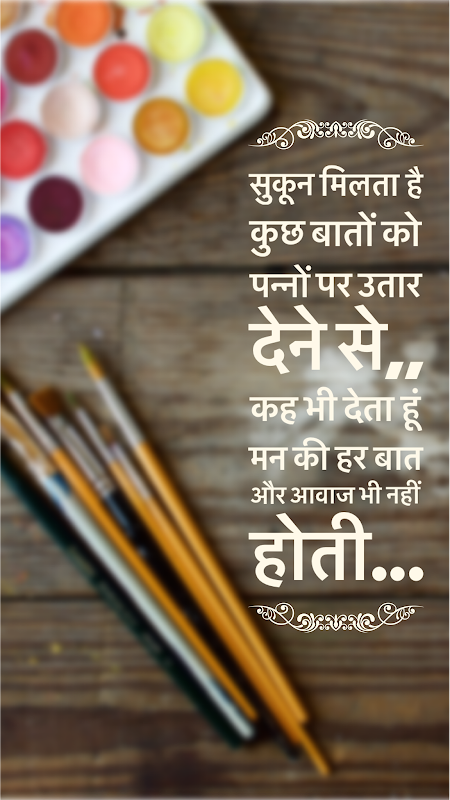 सुकून मिलता है
कुछ बातों को
पन्नों पर उतार
देने से,,
कह भी देता हूं
मन की हर बात
और आवाज भी नहीं
होती...